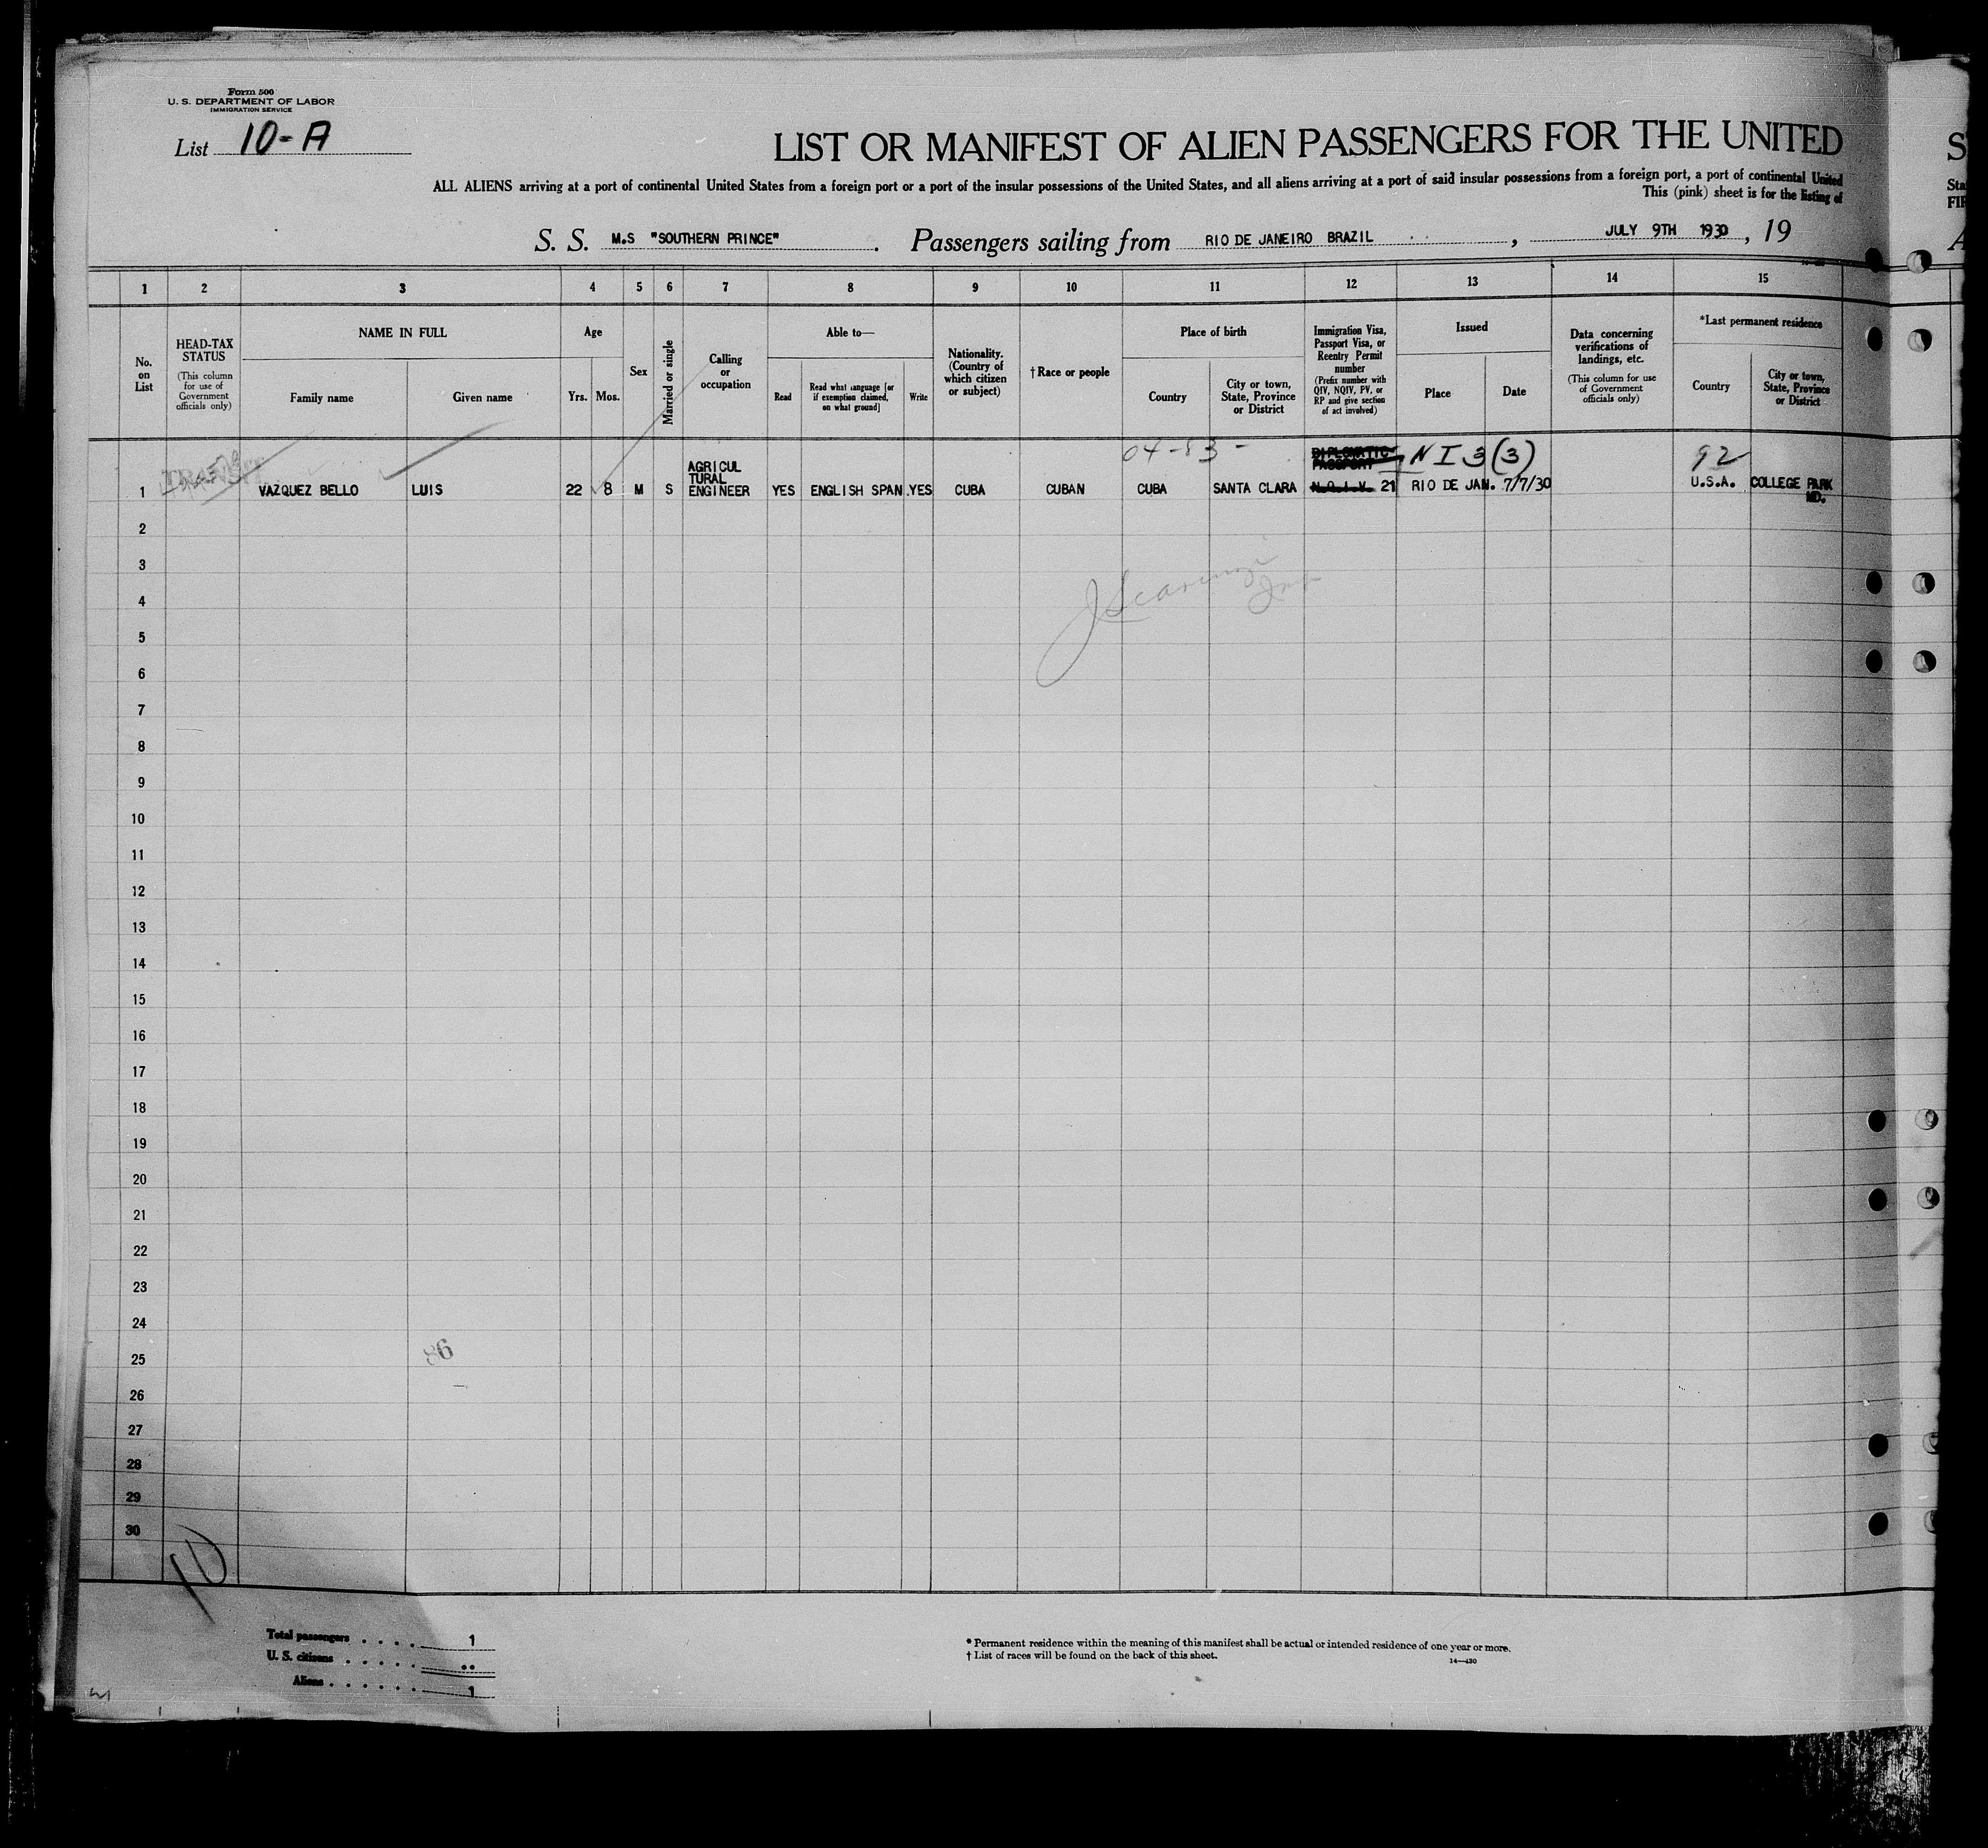 Form 500
U. S. DEPARTMENT OF LABOR
IMMIGRATION SERVICE
List 10-A
LIST OR MANIFEST OF ALIEN PASSENGERS FOR THE UNITED
ALL ALIENS arriving at a port of continental United States from a foreign port or a port of the insular possessions of the United States, and all aliens arriving at a port of said insular possessions from a foreign port, a port of continental United
This (pink) sheet is for the listing of
S. S. M.S "SOUTHERN PRINCE" . Passengers sailing from RIO DE JANEIRO BRAZIL , JULY 9TH 1930 , 19
1 2 3 4 5 6 7 8 9 10 11 12 13 14 15
No. on List
HEAD-TAX STATUS
(This column for use of Government officials only)
NAME IN FULL
Family name
Given name
Age
Yrs. Mos.
Sex
Married or single
Calling or occupation
Able to—
Read
Read what language [or if exemption claimed, on what ground]
Write
Nationality. (Country of which citizen or subject)
† Race or people
Place of birth
Country
City or town, State, Province or District
Immigration Visa, Passport Visa, or Reentry Permit number
(Prefix number with QIV, NQIV, PV, or RP and give section of act involved)
Issued
Place
Date
Data concerning verifications of landings, etc.
(This column for use of Government officials only)
*Last permanent residence
Country
City or town, State, Province or District
04-83 - DIPLOMATIC PASSPORT N I 3 (3) 92
1 TRANSIT VAZQUEZ BELLO LUIS 22 8 M S AGRICUL TURAL ENGINEER YES ENGLISH SPAN. YES CUBA CUBAN CUBA SANTA CLARA N.Q.I.V. 21 RIO DE JAN. 7/7/30 U.S.A. COLLEGE PARK MD.
2
3
4
5
6
7
8
9
10
11
12
13
14
15
16
17
18
19
20
21
22
23
24
25
86
26
27
28
29
30
Total passengers . . . . 1
U. S. citizens . . . . . ..
Aliens . . . . . . 1
* Permanent residence within the meaning of this manifest shall be actual or intended residence of one year or more.
† List of races will be found on the back of this sheet.
14—430